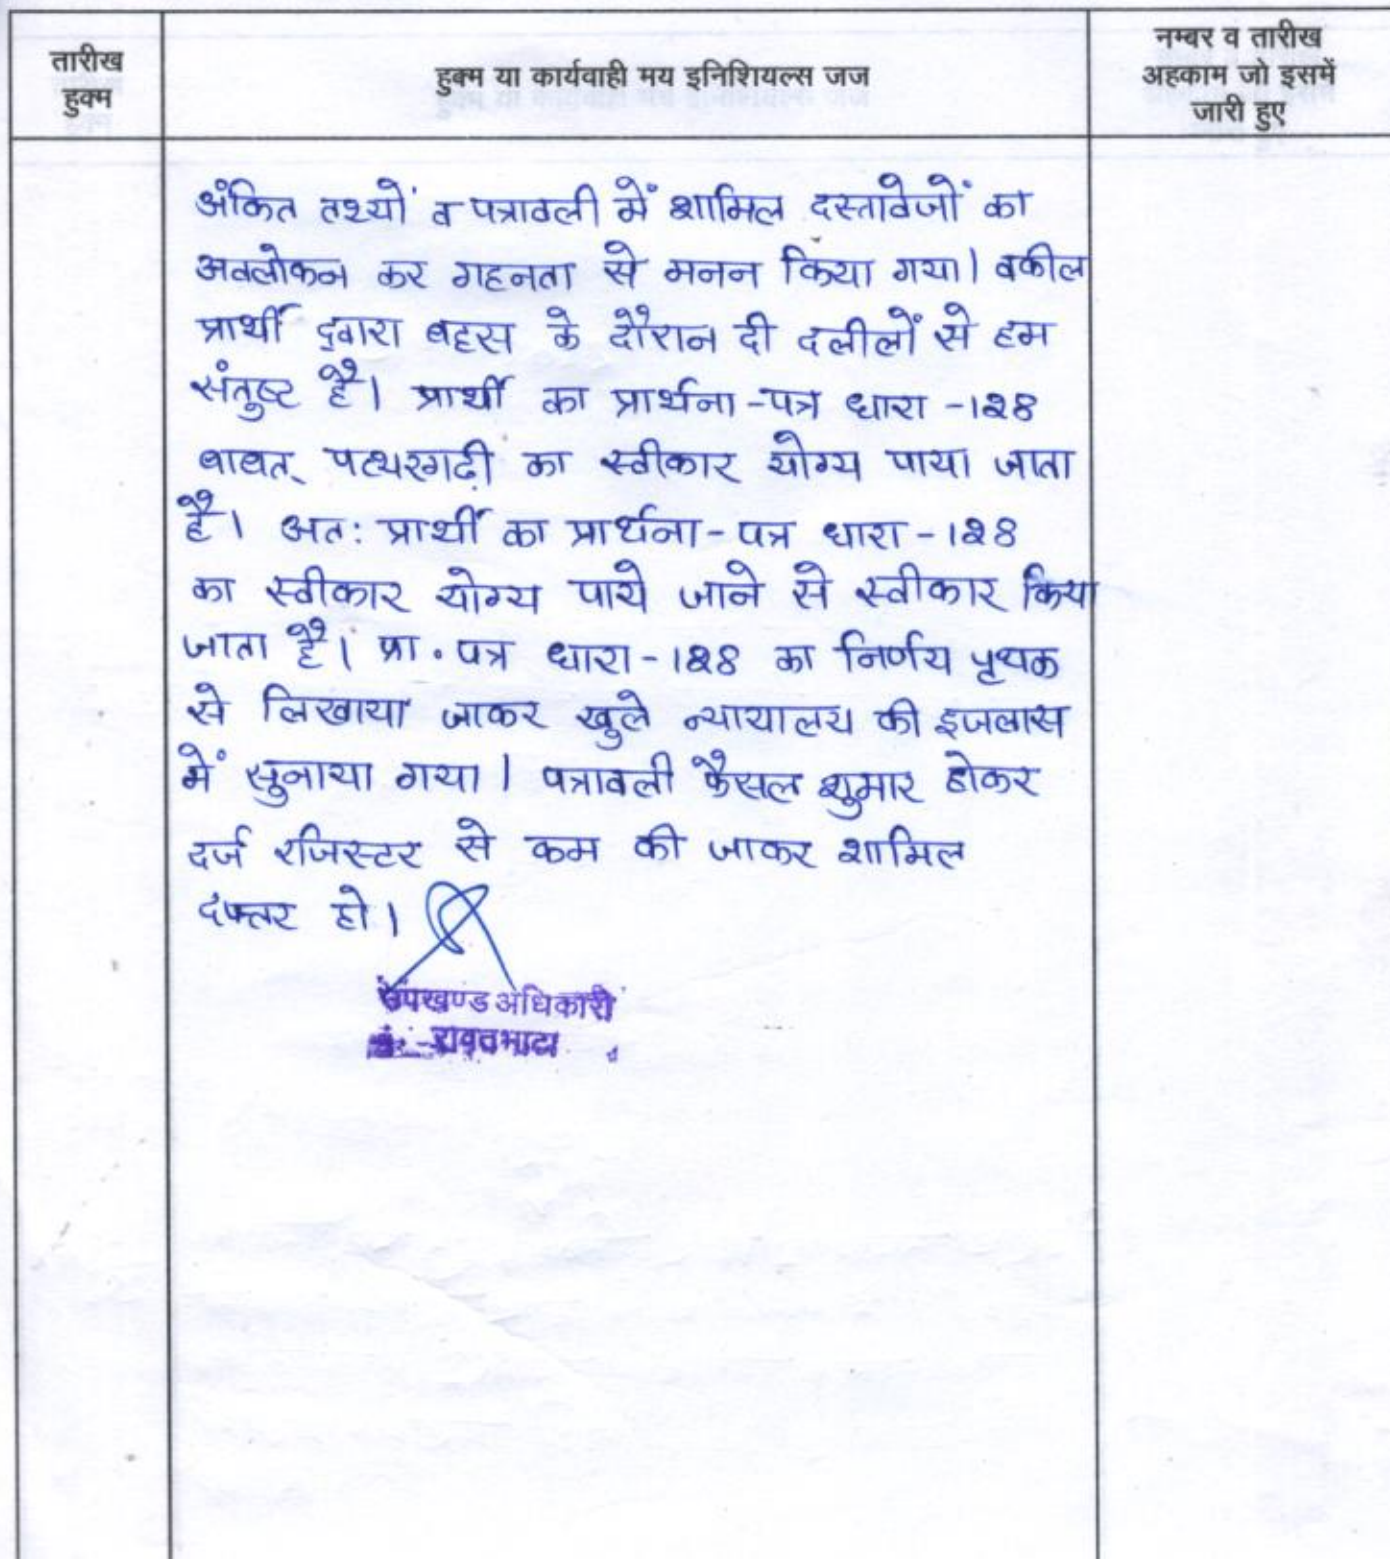 तारीख
हुक्म
हुक्म या कार्यवाही मय इनिशियल्स जज
नम्बर व तारीख
अहकाम जो इसमें
जारी हुए
अंकित तथ्यों व पत्रावली में शामिल दस्तावेजों का
अवलोकन कर गहनता से मनन किया गया। वकील
प्रार्थी द्वारा बहस के दौरान दी दलीलों से हम
संतुष्ट है। प्रार्थी का प्रार्थना-पत्र धारा -128
बाबत् पत्थरगढी का स्वीकार योग्य पाया जाता
है। अत: प्रार्थी का प्रार्थना-पत्र धारा -128
का स्वीकार योग्य पाये जाने से स्वीकार किया
जाता है। प्रा. पत्र धारा-128 का निर्णय पृथक
से लिखाया जाकर खुले न्यायालय की इजलास
में सुनाया गया। पत्रावली फैसल शुमार होकर
दर्ज रजिस्टर से कम की जाकर शामिल
दफ्तर हो।
उपखण्ड अधिकारी
रावतभाटा